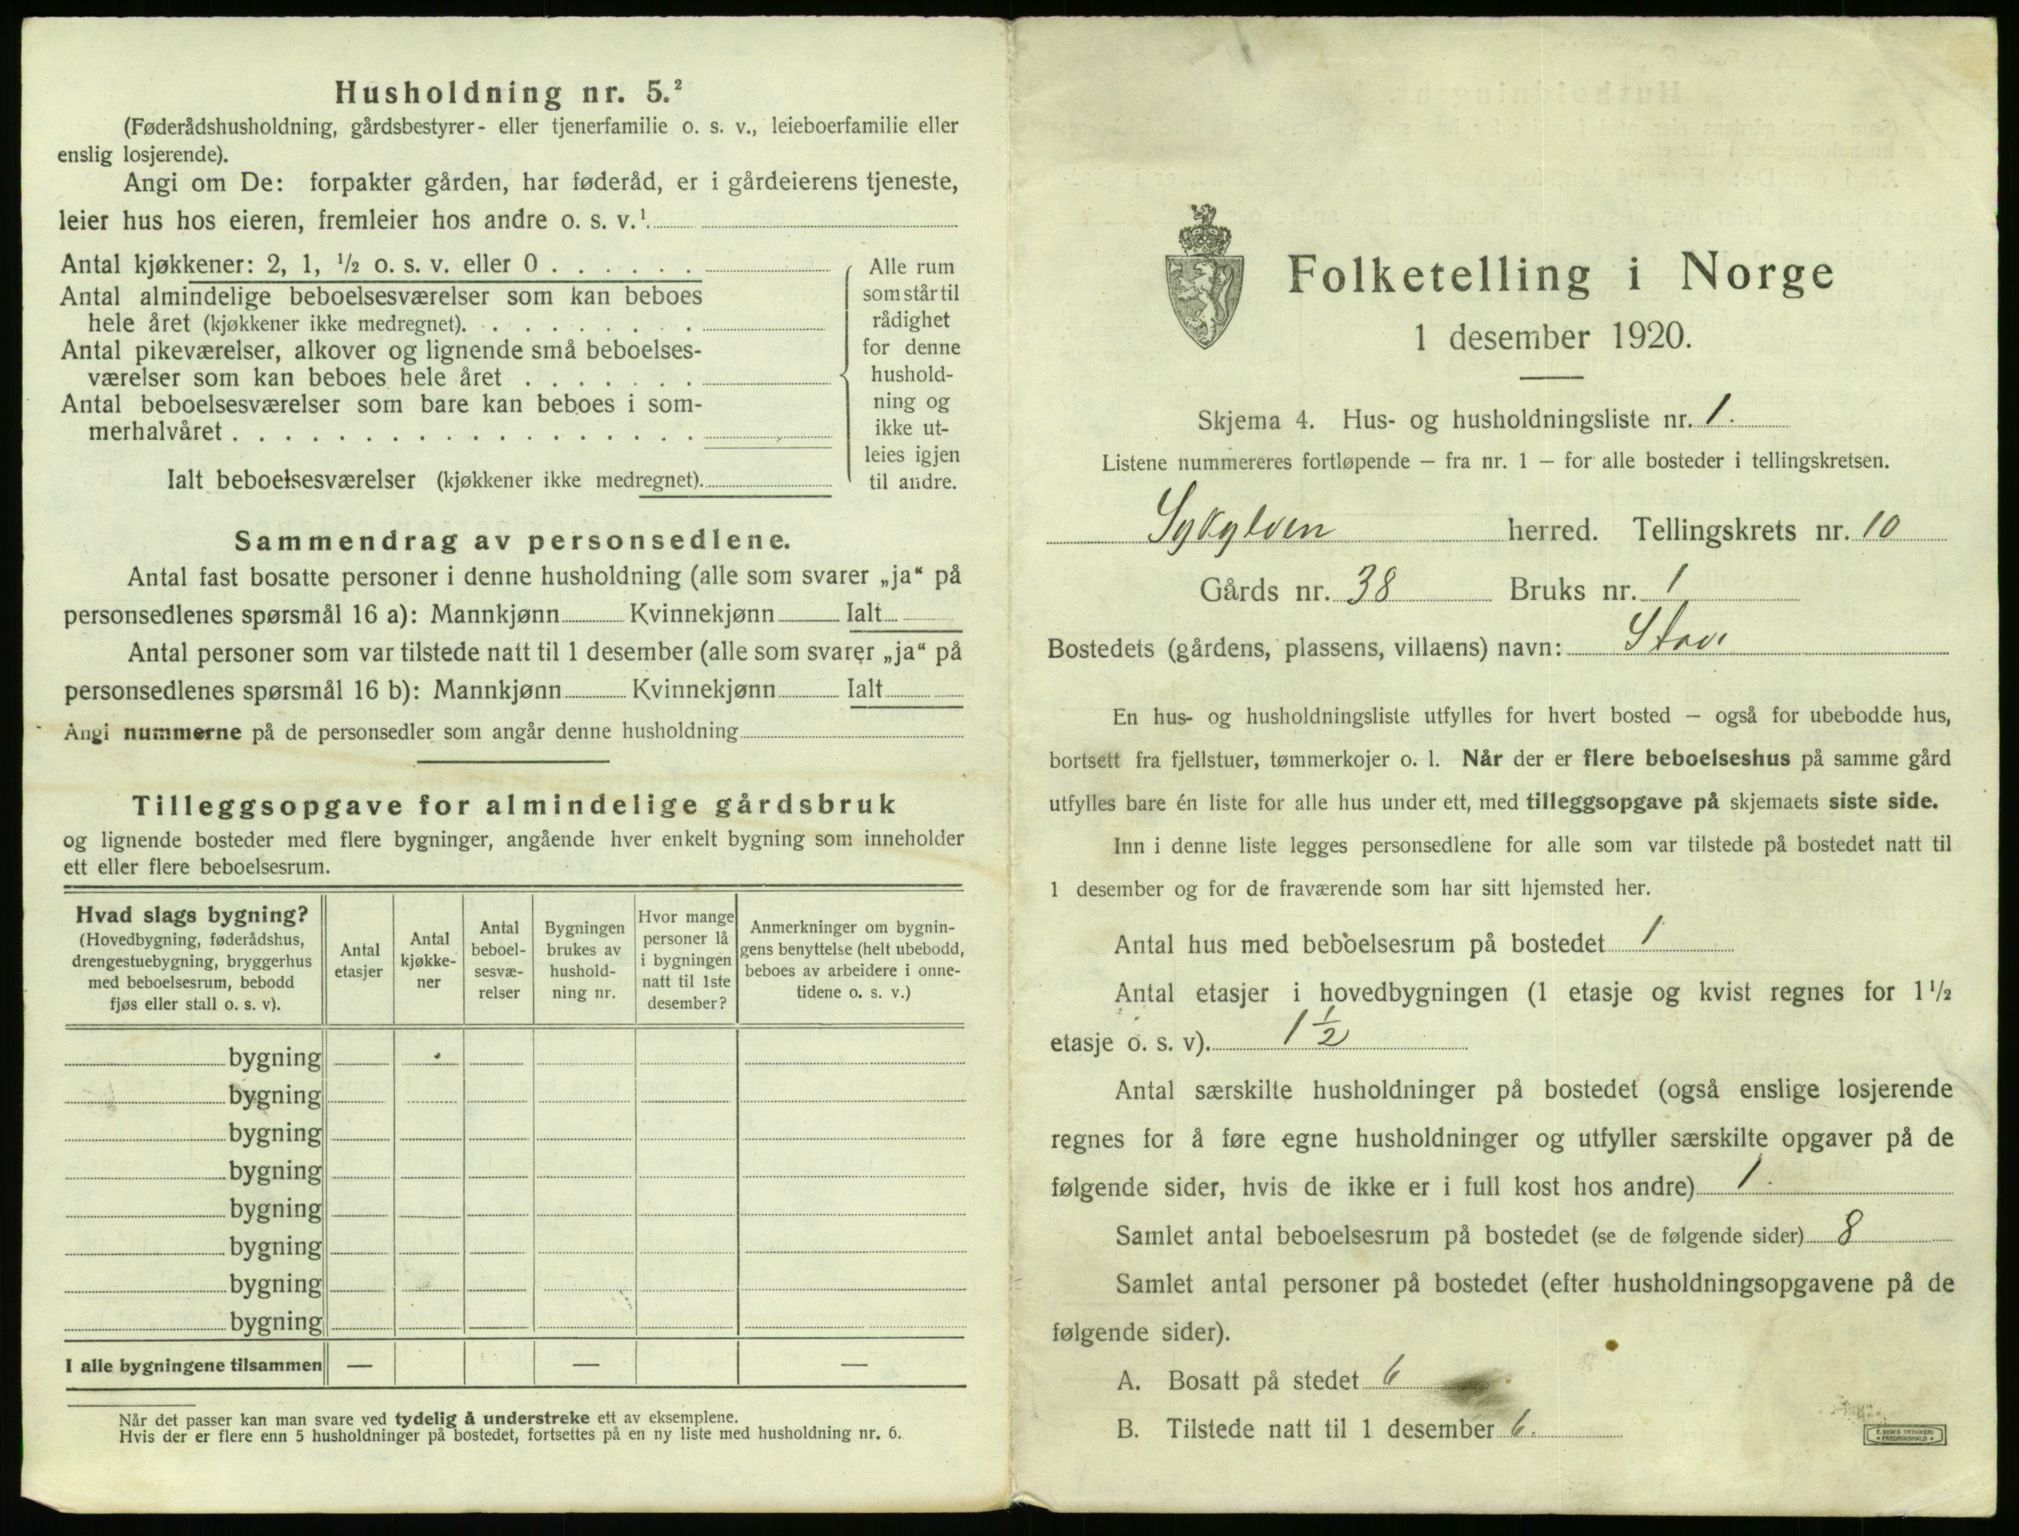 Husholdning nr. 5.²
(Føderådshusholdning, gårdsbestyrer- eller tjenerfamilie o. s. v., leieboerfamilie eller
enslig losjerende).
Angi om De: forpakter gården, har føderåd, er i gårdeierens tjeneste,
leier hus hos eieren, fremleier hos andre o. s. v.¹
Antal kjøkkener: 2, 1, ½ o. s. v. eller 0 . . . . . .
Antal almindelige beboelsesværelser som kan beboes
hele året (kjøkkener ikke medregnet). . . . . . . . .
Antal pikeværelser, alkover og lignende små beboelses-
værelser som kan beboes hele året . . . . . . .
Antal beboelsesværelser som bare kan beboes i som-
merhalvåret . . . . . . . . . . . . . . . . . .
Ialt beboelsesværelser (kjøkkener ikke medregnet).
Alle rum
som står til
rådighet
for denne
hushold-
ning og
ikke ut-
leies igjen
til andre.
Sammendrag av personsedlene.
Antal fast bosatte personer i denne husholdning (alle som svarer „ja“ på
personsedlenes spørsmål 16 a): Mannkjønn Kvinnekjønn Ialt
Antal personer som var tilstede natt til 1 desember (alle som svarer „ja“ på
personsedlenes spørsmål 16 b): Mannkjønn Kvinnekjønn Ialt
Angi nummerne på de personsedler som angår denne husholdning
Tilleggsopgave for almindelige gårdsbruk
og lignende bosteder med flere bygninger, angående hver enkelt bygning som inneholder
ett eller flere beboelsesrum.
Hvad slags bygning?
(Hovedbygning, føderådshus,
drengestuebygning, bryggerhus
med beboelsesrum, bebodd
fjøs eller stall o. s. v).
Antal
etasjer
Antal
kjøkke-
ner
Antal
beboel-
sesvæ-
relser
Bygningen
brukes av
hushold-
ning nr.
Hvor mange
personer lå
i bygningen
natt til 1ste
desember?
Anmerkninger om bygnin-
gens benyttelse (helt ubebodd,
beboes av arbeidere i onne-
tidene o. s. v.)
bygning
bygning
bygning
bygning
bygning
bygning
bygning
bygning
I alle bygningene tilsammen — — —
Når det passer kan man svare ved tydelig å understreke ett av eksemplene.
Hvis der er flere enn 5 husholdninger på bostedet, fortsettes på en ny liste med husholdning nr. 6.
Folketelling i Norge
1 desember 1920.
Skjema 4. Hus- og husholdningsliste nr. 1.
Listene nummereres fortløpende – fra nr. 1 – for alle bosteder i tellingskretsen.
Sykylven herred. Tellingskrets nr. 10
Gårds nr. 38 Bruks nr. 1
Bostedets (gårdens, plassens, villaens) navn: Stave
En hus- og husholdningsliste utfylles for hvert bosted – også for ubebodde hus,
bortsett fra fjellstuer, tømmerkojer o. l. Når der er flere beboelseshus på samme gård
utfylles bare én liste for alle hus under ett, med tilleggsopgave på skjemaets siste side.
Inn i denne liste legges personsedlene for alle som var tilstede på bostedet natt til
1 desember og for de fraværende som har sitt hjemsted her.
Antal hus med beboelsesrum på bostedet 1
Antal etasjer i hovedbygningen (1 etasje og kvist regnes for 1½
etasje o. s. v). 1½
Antal særskilte husholdninger på bostedet (også enslige losjerende
regnes for å føre egne husholdninger og utfyller særskilte opgaver på de
følgende sider, hvis de ikke er i full kost hos andre) 1.
Samlet antal beboelsesrum på bostedet (se de følgende sider) 8
Samlet antal personer på bostedet (efter husholdningsopgavene på de
følgende sider).
A. Bosatt på stedet 6
B. Tilstede natt til 1 desember 6.
E. SEM'S TRYKKERI
FREDRIKSHALD